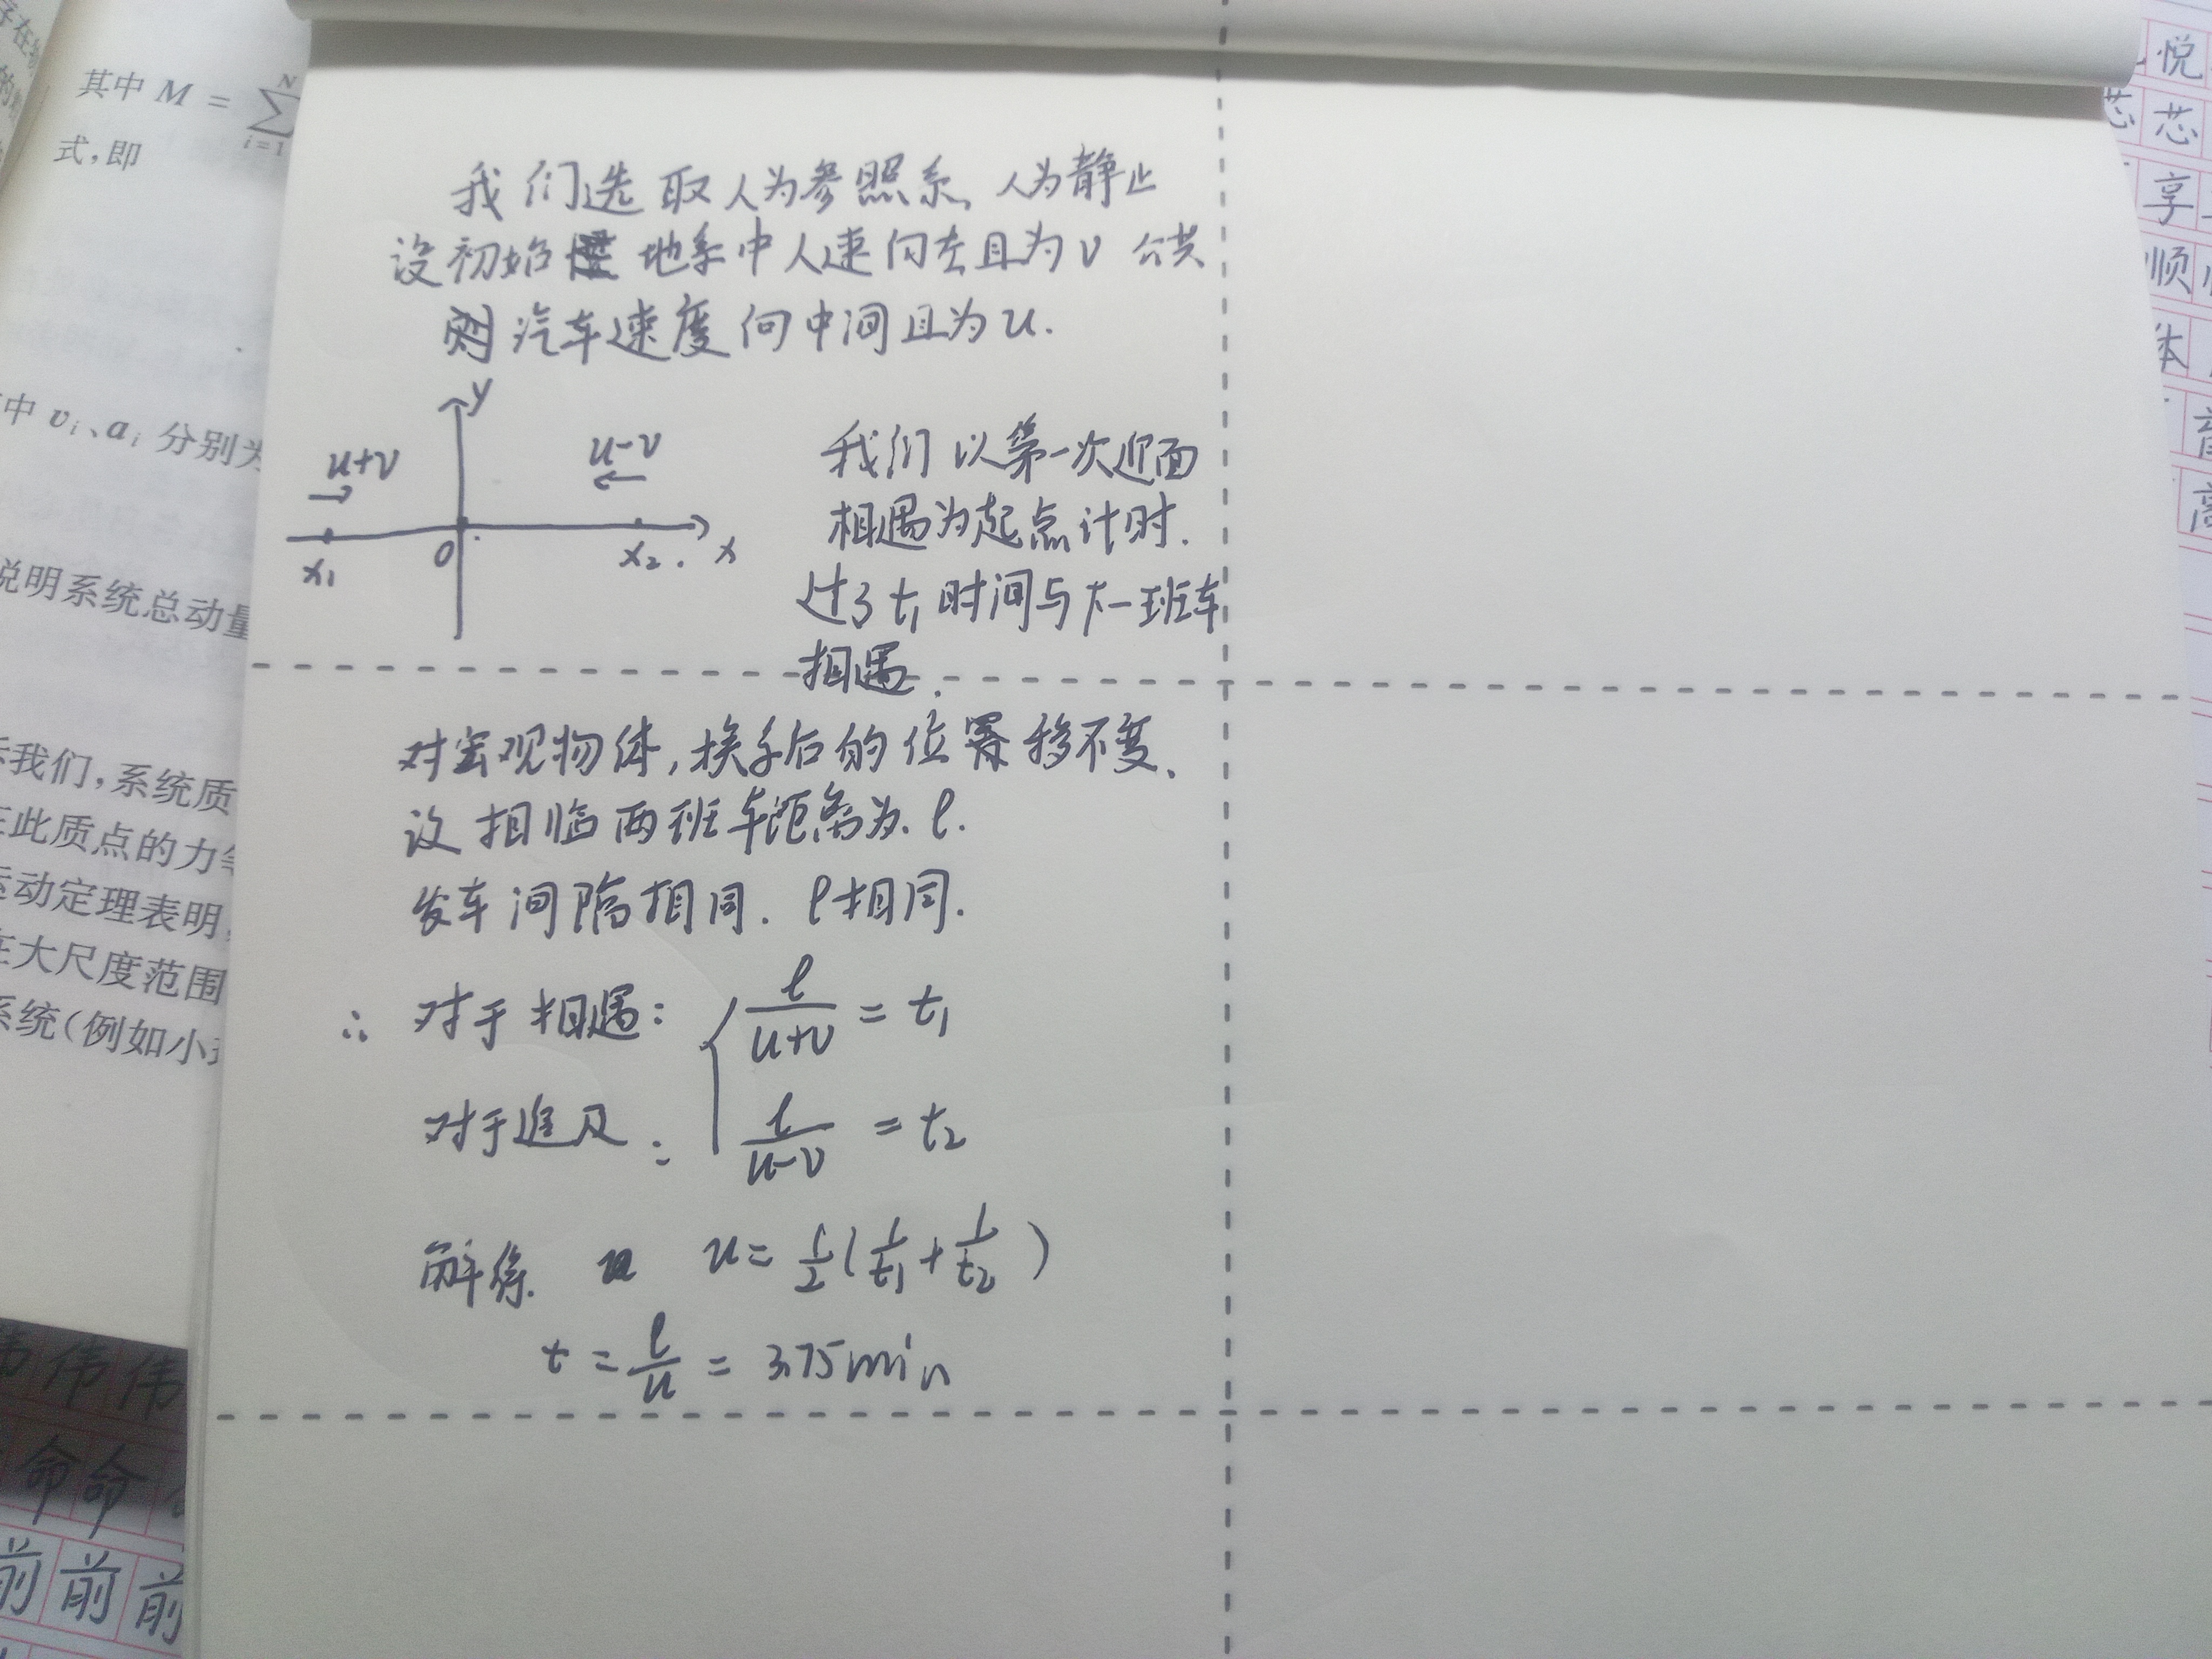 其中 M = ∑ N i=1
式,即
中 vi、ai 分别为
说明系统总动量
我们,系统质
此质点的力
运动定理表明,
在大尺度范围
系统(例如小
我们选取人为参照系、人为静止
设初始 地系中人速向左且为v 公共
则汽车速度向中间且为u.
y
u+v
u-v
x1 0 x2 . x
我们以第一次迎面
相遇为起点计时.
过了t1时间与下一班车
相遇.
对宏观物体,换系后的位移不变、
设相临两班车距离为.l.
发车间隔相同. l相同.
∴ 对于相遇: l/(u+v) = t1
对于追及: l/(u-v) = t2
解得. u = 1/2(l/t1 + l/t2)
t = l/u = 3.75min
伟 伟
命 命
前 前 前
悦
芯 芯
享
顺
体
高